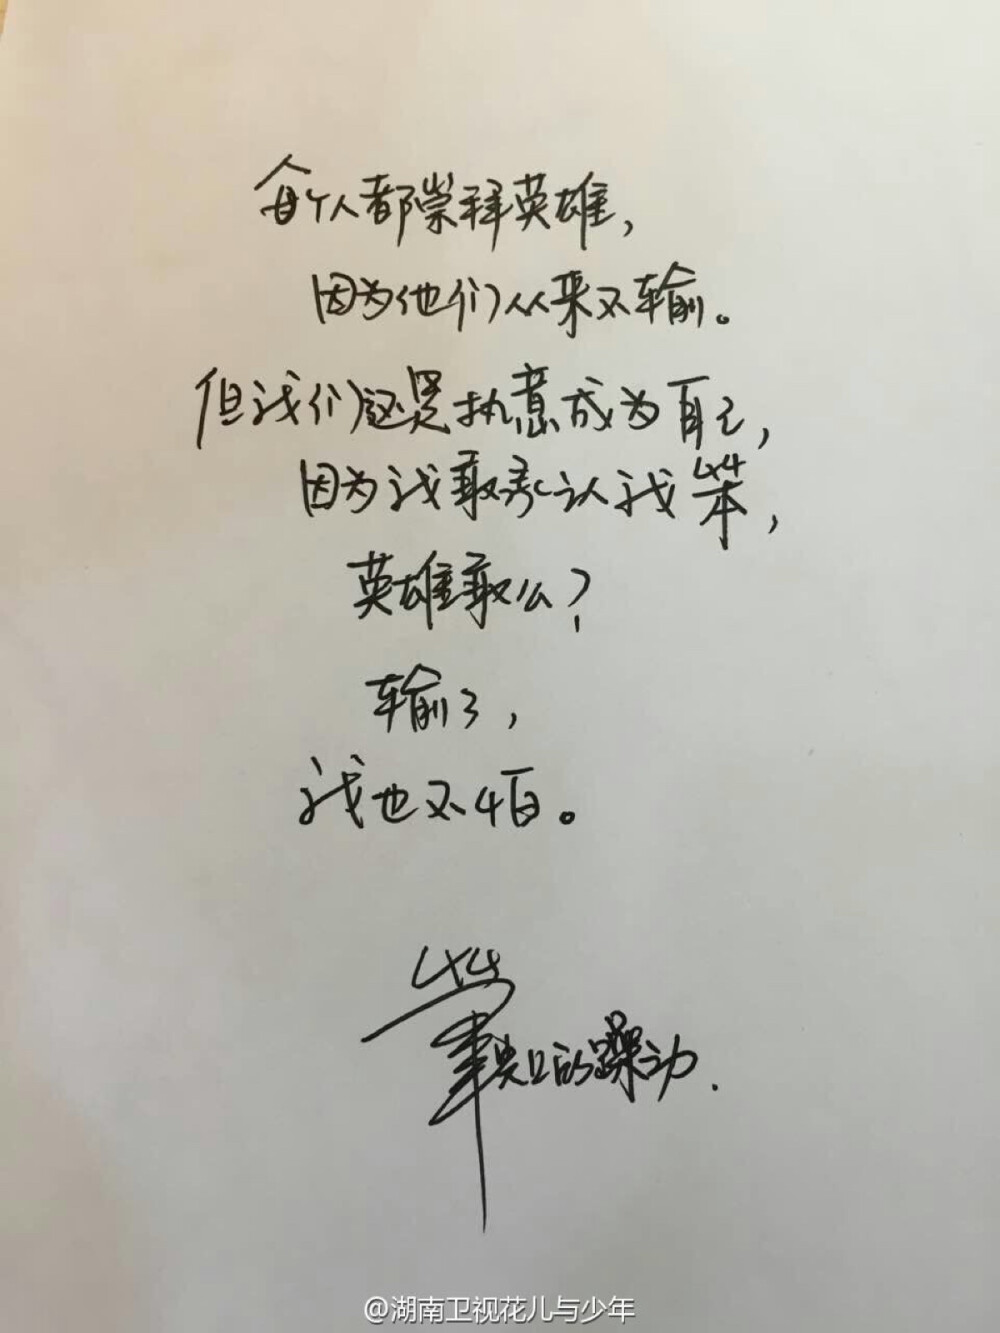 每个人都崇拜英雄，
因为他们从来不输。
但我们还是执意成为自己，
因为我敢承认我笨，
英雄敢么？
输了，
我也不怕。
笔尖上的躁动.
@湖南卫视花儿与少年